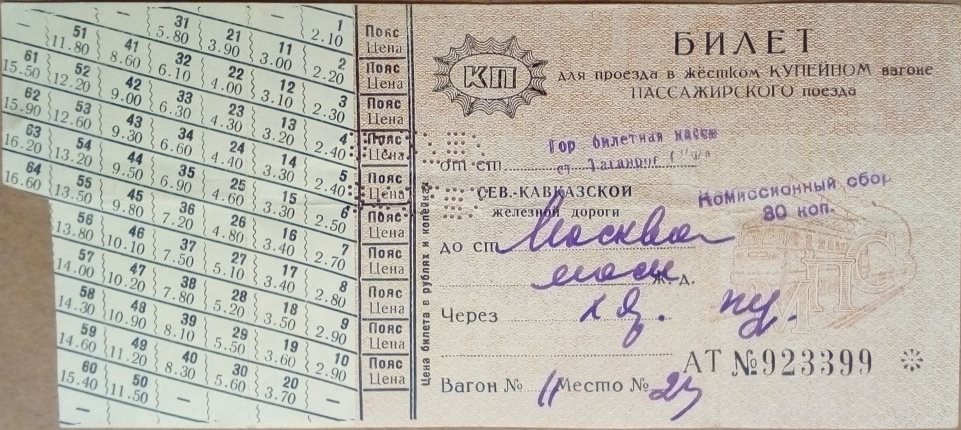 31 1
5.80 2.10
51 21
11.80 3.90
41 11
8.60 3.00
61 32 2
15.50 6.10 2.20
52 22
12.20 4.00
42 12
9.00 3.10
62 33 3
15.90 6.30 2.30
53 23
12.60 4.30
43 13
9.30 3.20
63 34 4
16.20 6.60 2.40
54 24
13.20 4.40
44 14
9.50 3.30
64 35 5
16.60 6.90 2.40
55 25
13.50 4.60
45 15
9.80 3.30
36 6
7.20 2.50
56 26
13.80 4.80
46 16
10.10 3.40
37 7
7.50 2.70
57 27
14.00 5.10
47 17
10.20 3.40
38 8
7.80 2.80
58 28
14.30 5.20
48 18
10.90 3.50
39 9
8.10 2.90
59 29
14.60 5.50
49 19
11.20 3.60
40 10
8.30 2.90
60 30
15.40 5.60
50 20
11.50 3.70
Пояс
Цена
Пояс
Цена
Пояс
Цена
Пояс
Цена
Пояс
Цена
Пояс
Цена
Пояс
Цена
Пояс
Цена
Пояс
Цена
Пояс
Цена
Цена билета в рублях и копейках
КП
БИЛЕТ
для проезда в жёстком КУПЕЙНОМ вагоне
ПАССАЖИРСКОГО поезда
Гор билетная касса
от ст. ст. Таганрог
СЕВ.-КАВКАЗСКОЙ
железной дороги
Комиссионный сбор
80 коп.
до ст. Москва
моск ж. д.
Через
АТ №923399
Вагон № 11 Место №